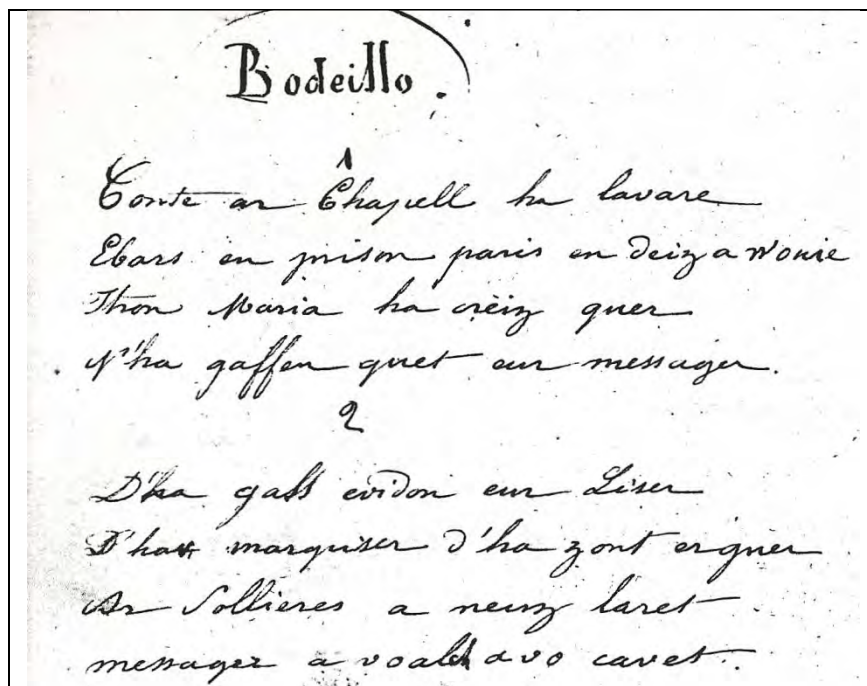 Bodeillo.
1
Conte ar Chapell ha lavare
Ebars en prison paris en deiz a n'ouie
Itron Maria ha creiz quer
N'ha gaffen quet eur messager.
2
D'ha gass evidon eur Liser
D'ha marquiser d'ha zont er guer
Ar Sollieres a neuz laret
messager a voalh avo cavet.